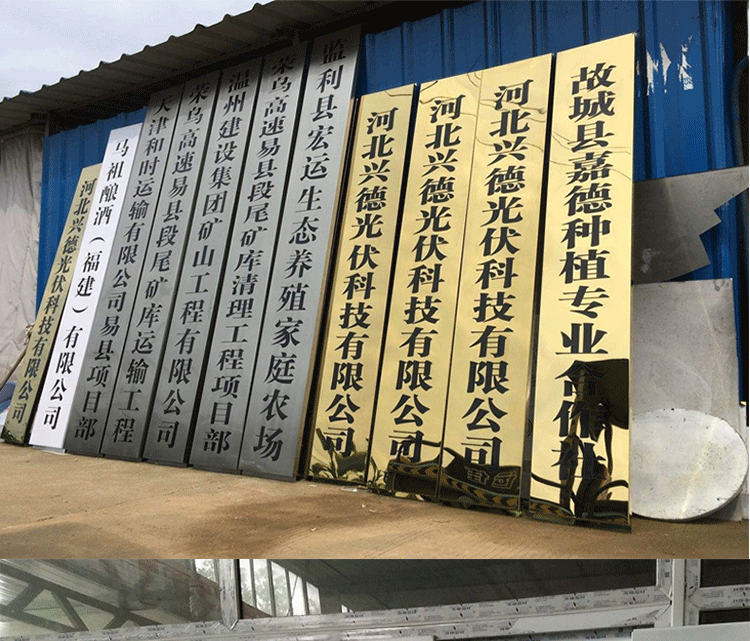 河北兴德光伏科技有限公司
马祖酿酒（福建）有限公司
天津和时运输有限公司易县项目部
荣乌高速易县段尾矿库运输工程
温州建设集团矿山工程有限公司
荣乌高速易县段尾矿库清理工程项目部
监利县宏运生态养殖家庭农场
河北兴德光伏科技有限公司
河北兴德光伏科技有限公司
河北兴德光伏科技有限公司
故城县嘉德种植专业合作社